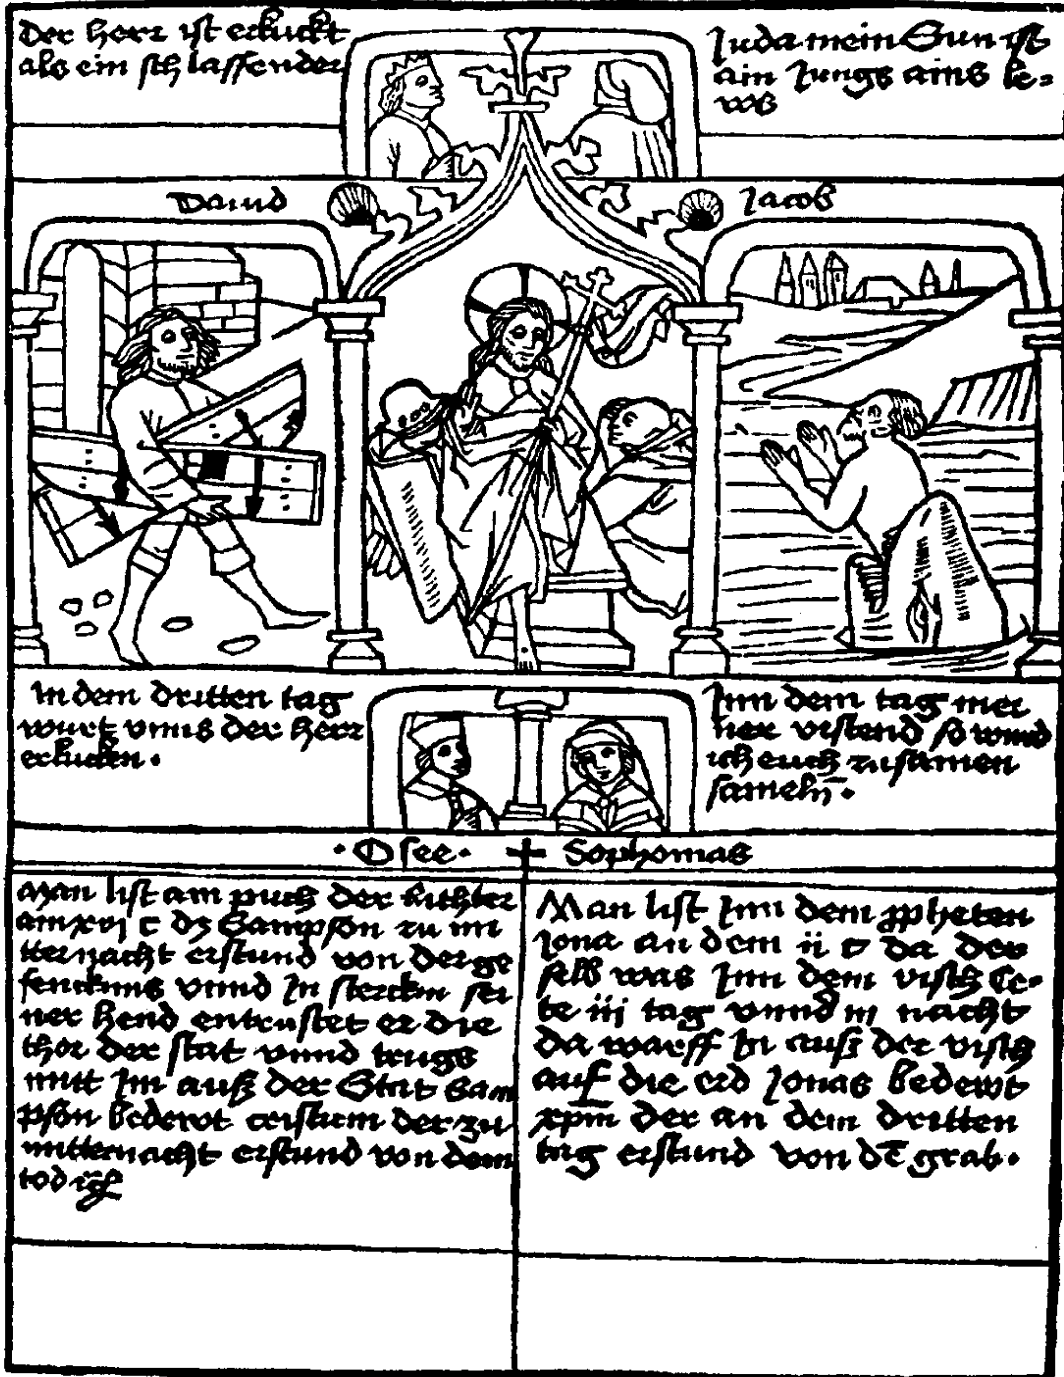 Der herr ist erkuckt
als ein schlaffender
Juda mein Sun ist
ain Jungs ains le=
ws
Dauid
Jacob
In dem dritten tag
wurt vnns der herr
erkucken.
Jnn dem tag mei
ner vrstend so wird
ich euch zu samen
sameln̄.
·Osee· Sophonias
Man list am puch der Richter
am xvj c dz Sampson zu mi
tternacht erstund von der ge
fencknus vnnd In sterckin sei
ner hend entrustet er die
thor der stat vnnd trugs
mitt Im auß der Stat Sam
pson bedewt cristum der zu
mitternacht erstund von dem
tod
Man list Jnn dem ꝓpheten
Jona an dem ii c da der
selb was Jnn dem visch Ce-
te iij tag vnnd iij nacht
da warff In auß der visch
auf die erd Jonas bedewt
xp̄m der an dem dritten
tag erstund von dē grab.